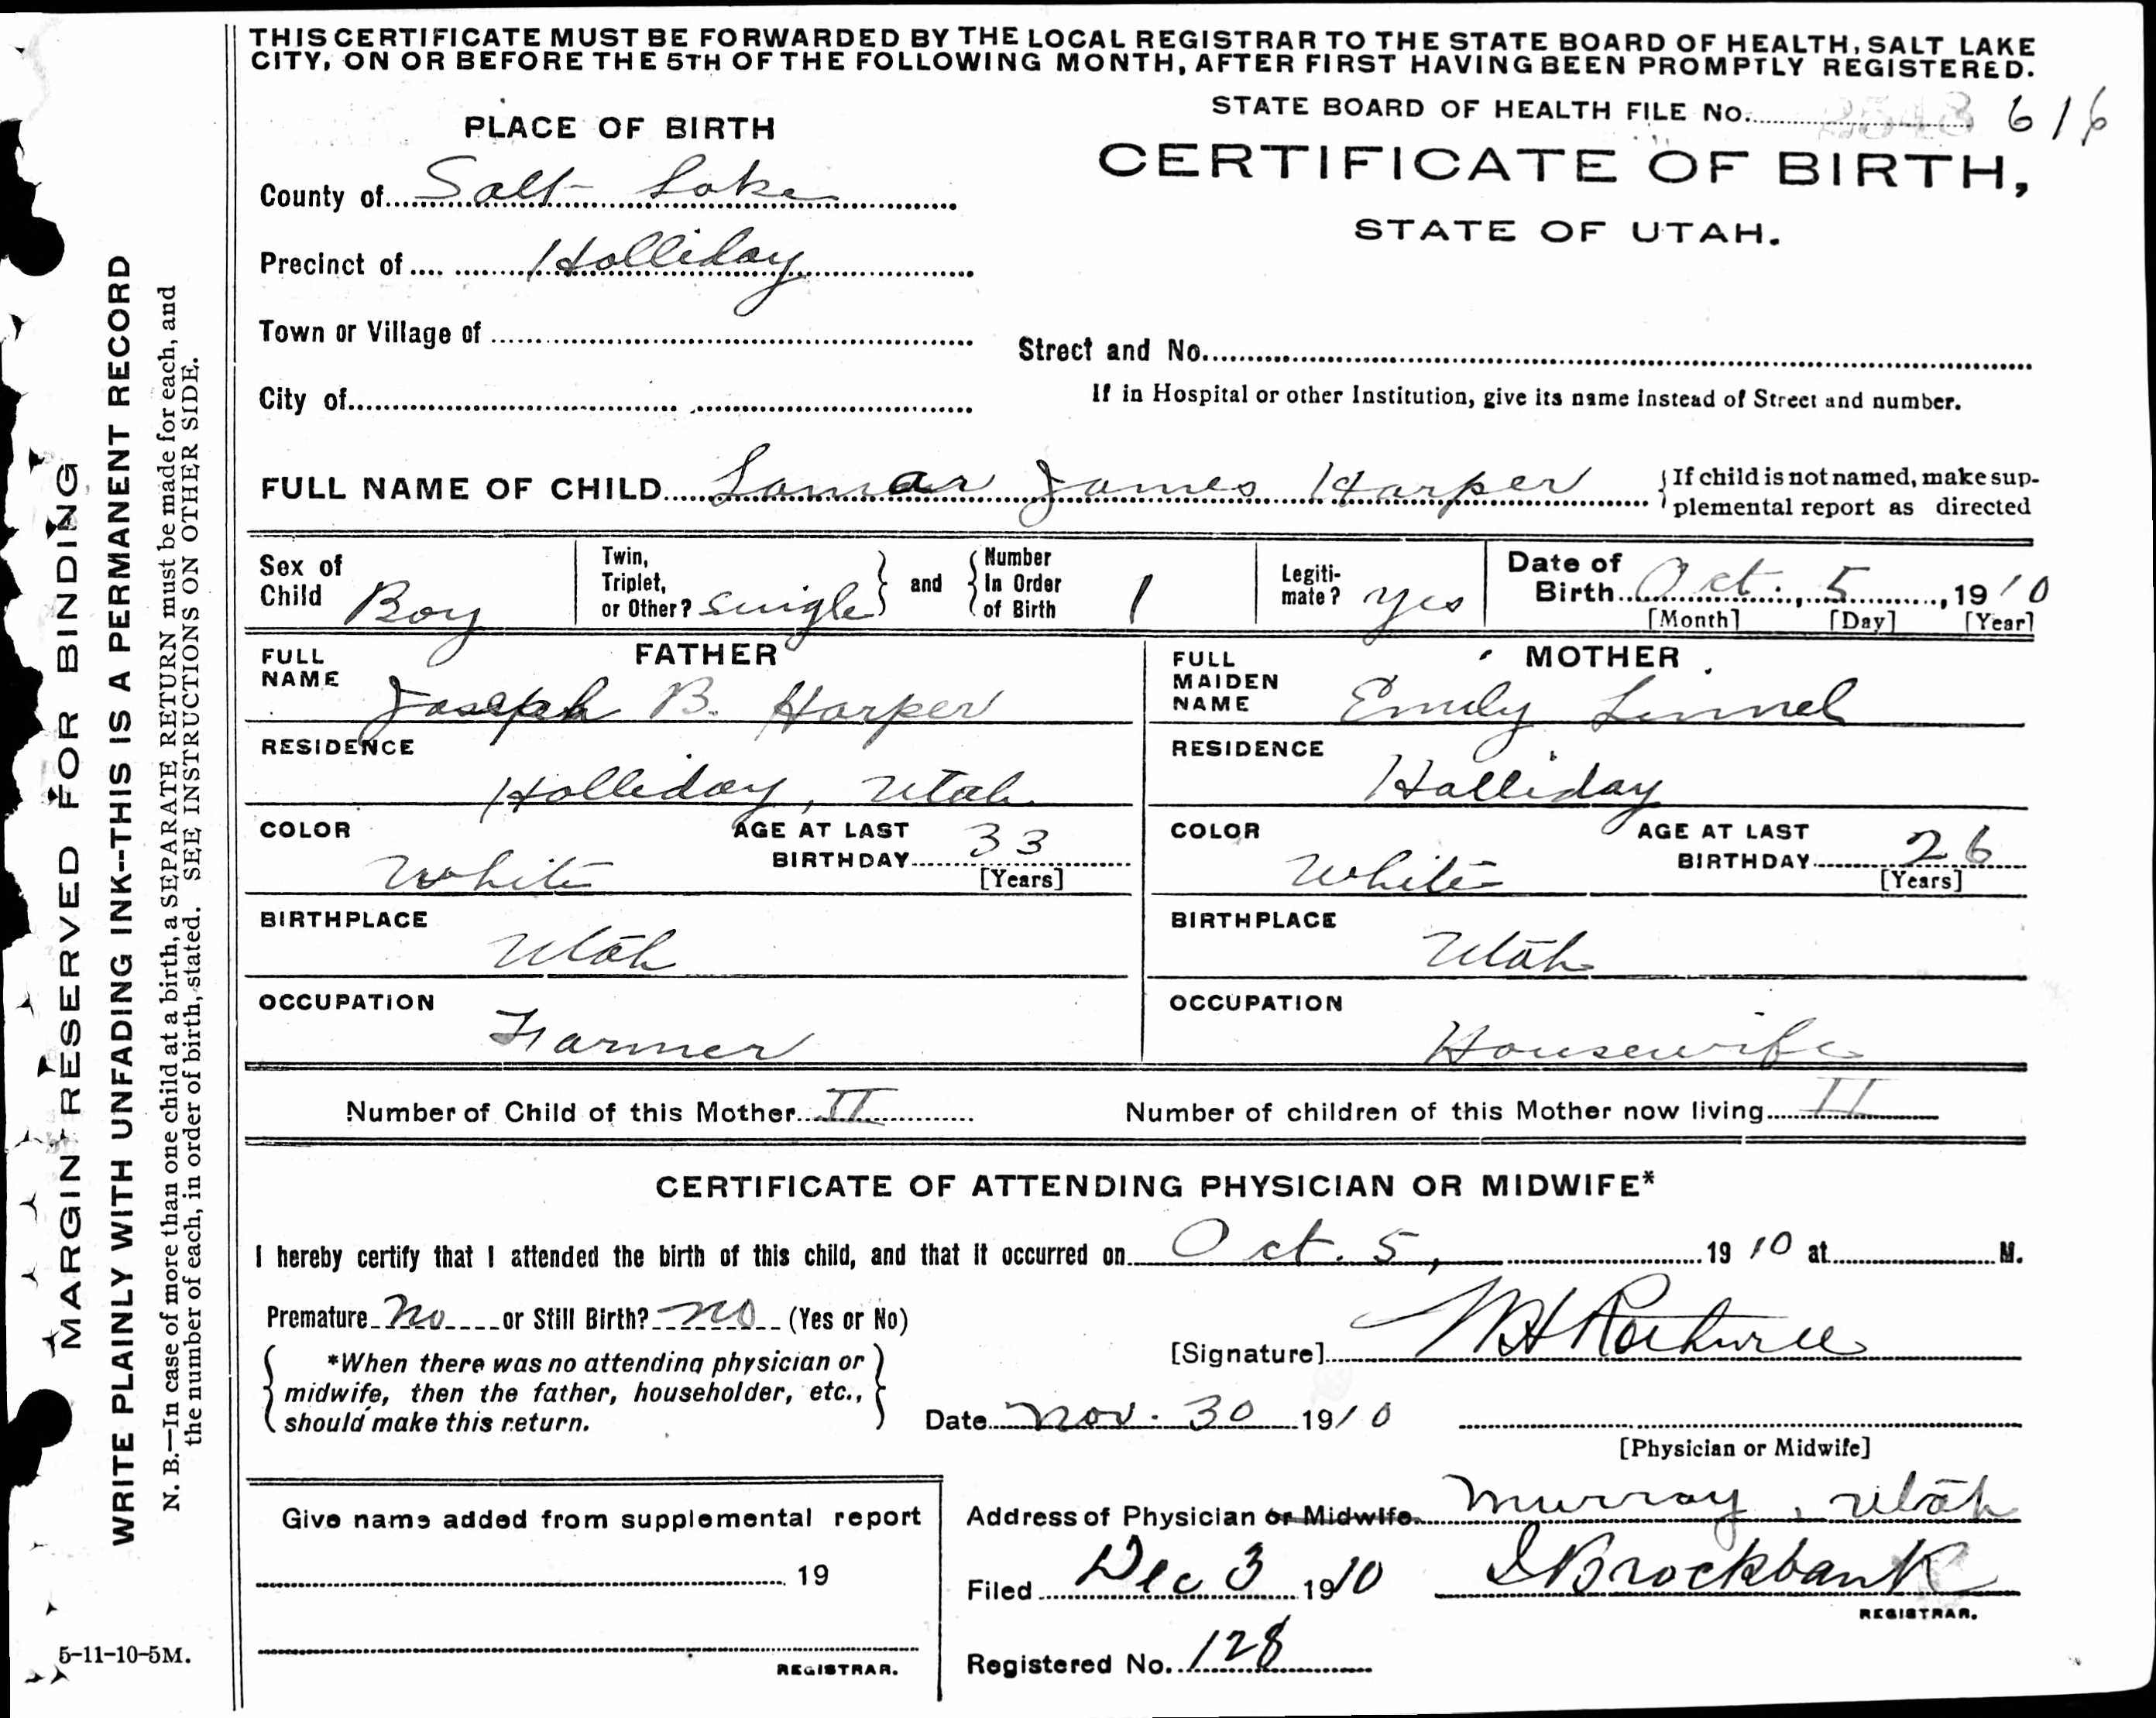 THIS CERTIFICATE MUST BE FORWARDED BY THE LOCAL REGISTRAR TO THE STATE BOARD OF HEALTH, SALT LAKE
CITY, ON OR BEFORE THE 5TH OF THE FOLLOWING MONTH, AFTER FIRST HAVING BEEN PROMPTLY REGISTERED.
STATE BOARD OF HEALTH FILE No. 616
PLACE OF BIRTH
CERTIFICATE OF BIRTH,
STATE OF UTAH.
County of Salt Lake
Precinct of Holliday
Town or Village of
Street and No.
City of
If in Hospital or other Institution, give its name instead of Street and number.
FULL NAME OF CHILD Lamar James Harper
If child is not named, make sup-
plemental report as directed
Sex of
Child Boy
Twin,
Triplet,
or Other? Single
and
Number
In Order
of Birth 1
Legiti-
mate? Yes
Date of
Birth Oct. 5, 1910
[Month] [Day] [Year]
FATHER
FULL
NAME Joseph B. Harper
RESIDENCE
Holliday, Utah
COLOR
White
AGE AT LAST
BIRTHDAY 33
[Years]
BIRTHPLACE
Utah
OCCUPATION
Farmer
MOTHER
FULL
MAIDEN
NAME Emily Linnel
RESIDENCE
Holliday
COLOR
White
AGE AT LAST
BIRTHDAY 26
[Years]
BIRTHPLACE
Utah
OCCUPATION
Housewife
Number of Child of this Mother II
Number of children of this Mother now living II
CERTIFICATE OF ATTENDING PHYSICIAN OR MIDWIFE*
I hereby certify that I attended the birth of this child, and that it occurred on Oct. 5, 1910 at M.
Premature No or Still Birth? no (Yes or No)
*When there was no attending physician or
midwife, then the father, householder, etc.,
should make this return.
[Signature] W H Rothwell
Date Nov. 30 1910
[Physician or Midwife]
Give name added from supplemental report
19
REGISTRAR.
Address of Physician or Midwife Murray, Utah
Filed Dec 3 1910
Brockbank
REGISTRAR.
Registered No. 128
MARGIN RESERVED FOR BINDING
WRITE PLAINLY WITH UNFADING INK--THIS IS A PERMANENT RECORD
N. B.—In case of more than one child at a birth, a SEPARATE RETURN must be made for each, and
the number of each, in order of birth, stated. SEE INSTRUCTIONS ON OTHER SIDE.
5-11-10-5M.